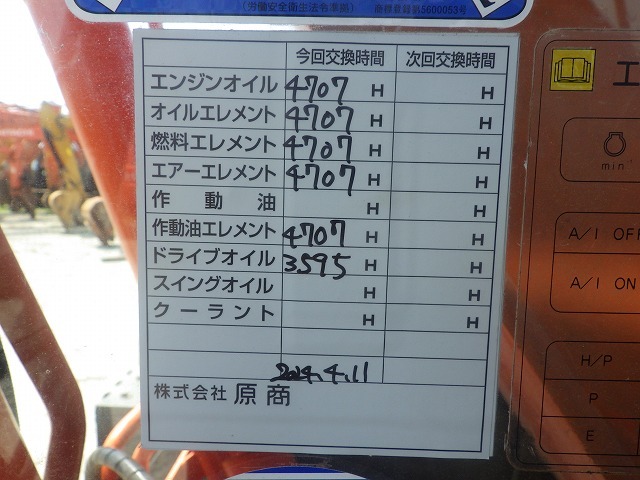 (労働安全衛生法令準拠) 商標登録第5600053号
今回交換時間 次回交換時間
エンジンオイル 4707 H H
オイルエレメント 4707 H H
燃料エレメント 4707 H H
エアーエレメント 4707 H H
作動油 H H
作動油エレメント 4707 H H
ドライブオイル 3595 H H
スイングオイル H H
クーラント H H
2024.4.11
株式会社 原商
エ
min
A/I OFF
A/I ON
H/P
P
E